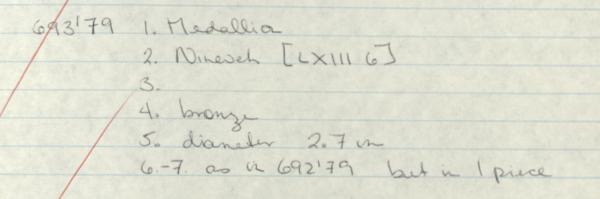 693'79 1. Medallion
2. Nineveh [LXIII 6]
3.
4. bronze
5. diameter 2.7 cm
6.-7. as in 692'79 but in 1 piece